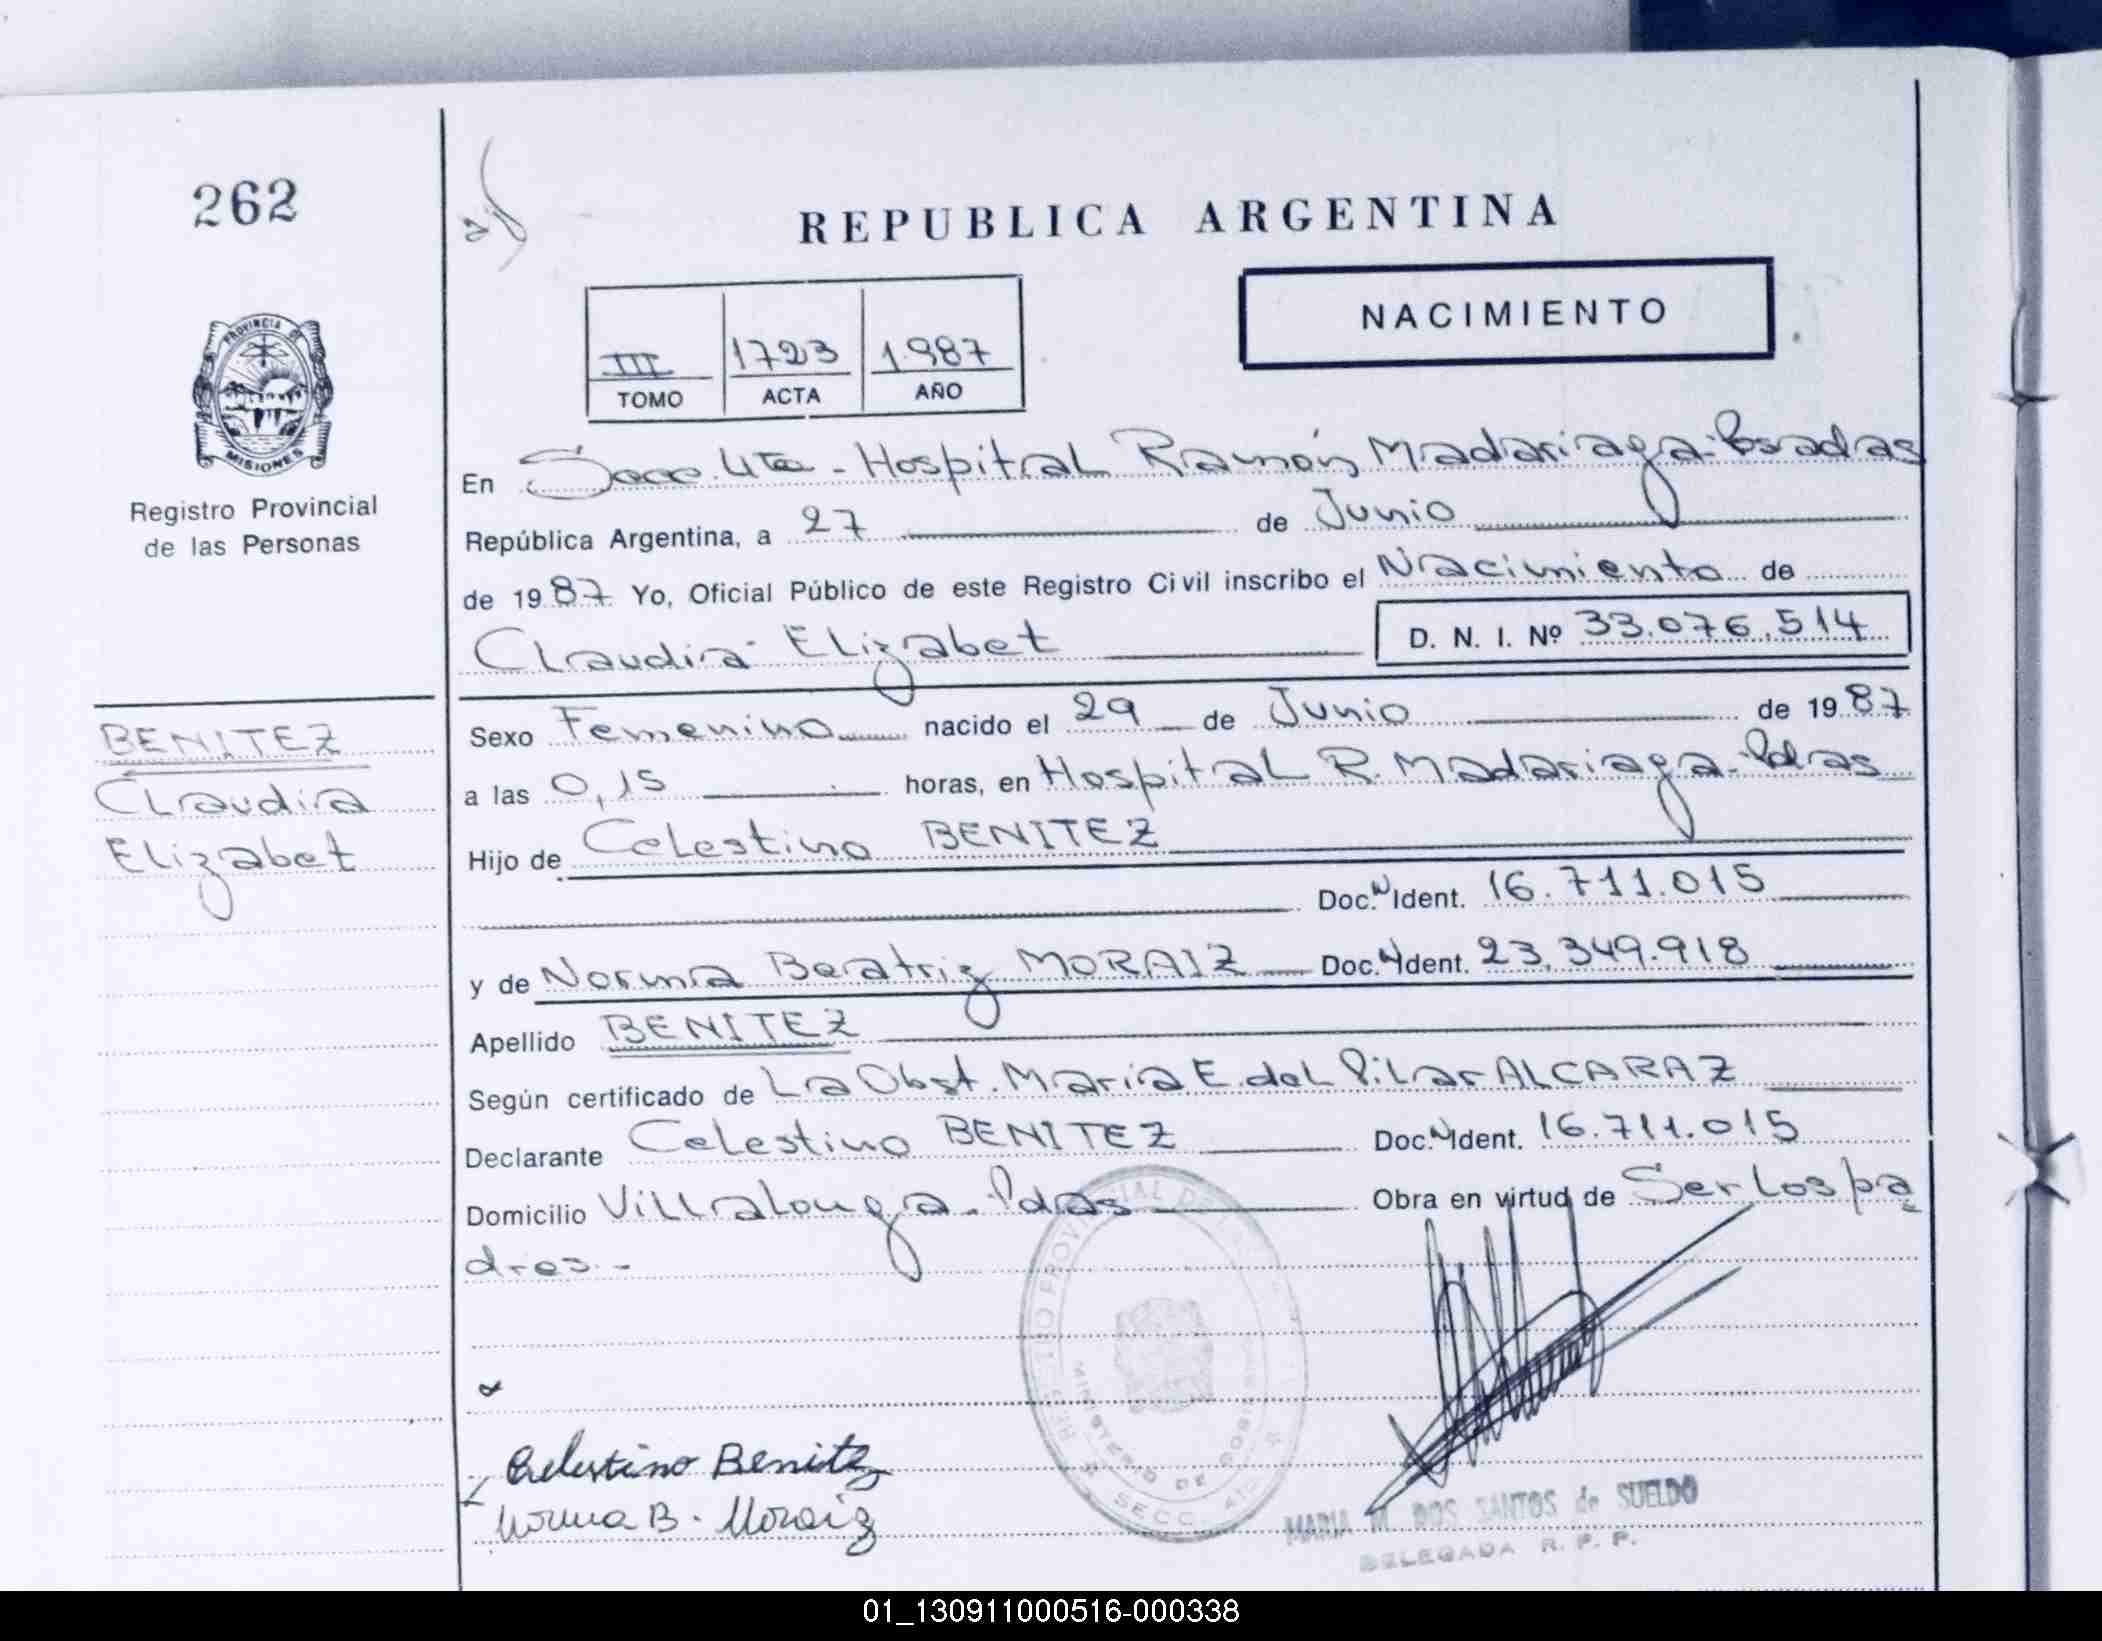 262
REPUBLICA ARGENTINA
NACIMIENTO
III 1723 1.987
TOMO ACTA AÑO
PROVINCIA DE MISIONES
Registro Provincial
de las Personas
En Secc. 4ta - Hospital Ramón Madariaga - Posadas
República Argentina, a 27 de Junio
de 1987 Yo, Oficial Público de este Registro Civil inscribo el Nacimiento de
Claudia Elizabet D. N. I. Nº 33.076.514
BENITEZ
Claudia
Elizabet
Sexo Femenino nacido el 29 de Junio de 1987
a las 0,15 horas, en Hospital R. Madariaga - Pdas
Hijo de Celestino BENITEZ
Doc. N Ident. 16.711.015
y de Norma Beatriz MORAIZ Doc. N Ident. 23.349.918
Apellido BENITEZ
Según certificado de La Obst. María E. del Pilar ALCARAZ
Declarante Celestino BENITEZ Doc. N Ident. 16.711.015
Domicilio Villalonga - Pdas Obra en virtud de Ser los pa
dres. -
Celestino Benitez
Norma B. Moraiz
MINISTERIO DE GOBIERNO
SECC. 4ta
MARIA M. DOS SANTOS de SUELDO
DELEGADA R. P. P.
01_130911000516-000338